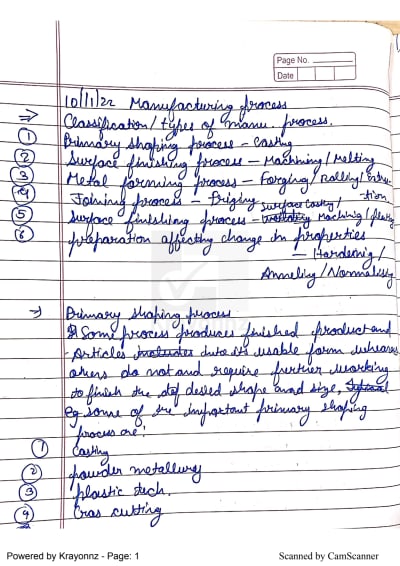 Page No.
Date
10/1/22 Manufacturing process
=> Classification/types of manu. process.
① Primary shaping process - Casting
② Surface finishing process - Machning/Melting
③ Metal forming process - Forging/Rolling/Extru-
tion
④ Joining process - Surface Casty/
⑤ Surface finishing process - Machinig/
⑥ preparation affecting change in properties
- Hardenig/
Anneling/Normalisig
→ Primary shaping process
Some process produces finished product and
Articles into its usable form wheras
others do not and require further working
to finish the desied shape and size,
eg some of the important primary shaping
process are!
① Casting
② powder metallurg
③ plastic tech.
④ Gas cutting
Powered by Krayonnz - Page: 1
Scanned by CamScanner